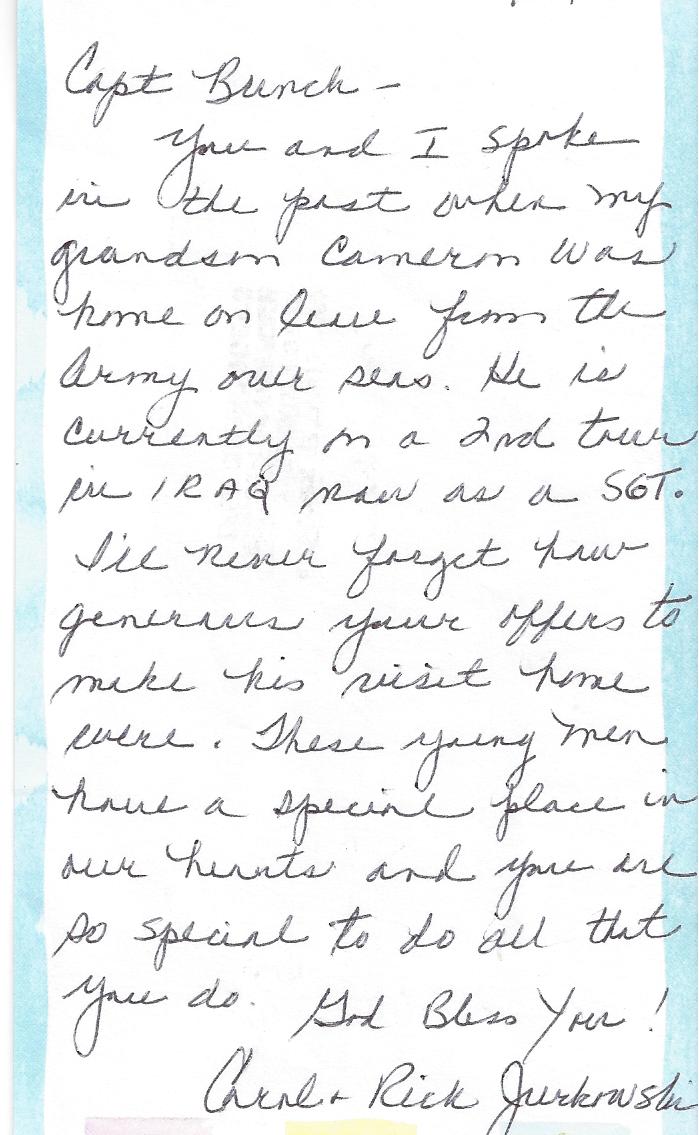 Capt Bunch -
You and I spoke
in the past when my
grandson Cameron was
home on leave from the
Army over seas. He is
currently on a 2nd tour
in IRAQ now as a SGT.
I'll never forget how
generous your offers to
make his visit home
were. These young men
have a special place in
our hearts and you are
so special to do all that
you do. God Bless You!
Carol + Rick Jurkowski